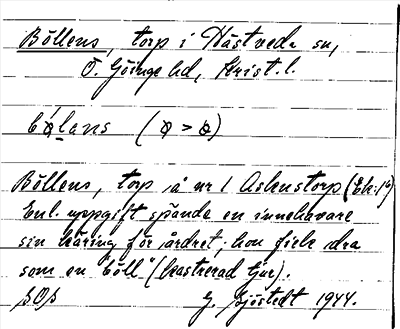 Böllens, torp i Hästveda sn,
Ö. Göinge hd, Krist. l.
Böllens, torp å nr 1 Askenstorp (Ek: 16)
Enl. uppgift spände en innehavare
sin käring för årdret, hon fick dra
som en "böll" (kastrerad tjur).
SOS G. Sjöstedt 1944.